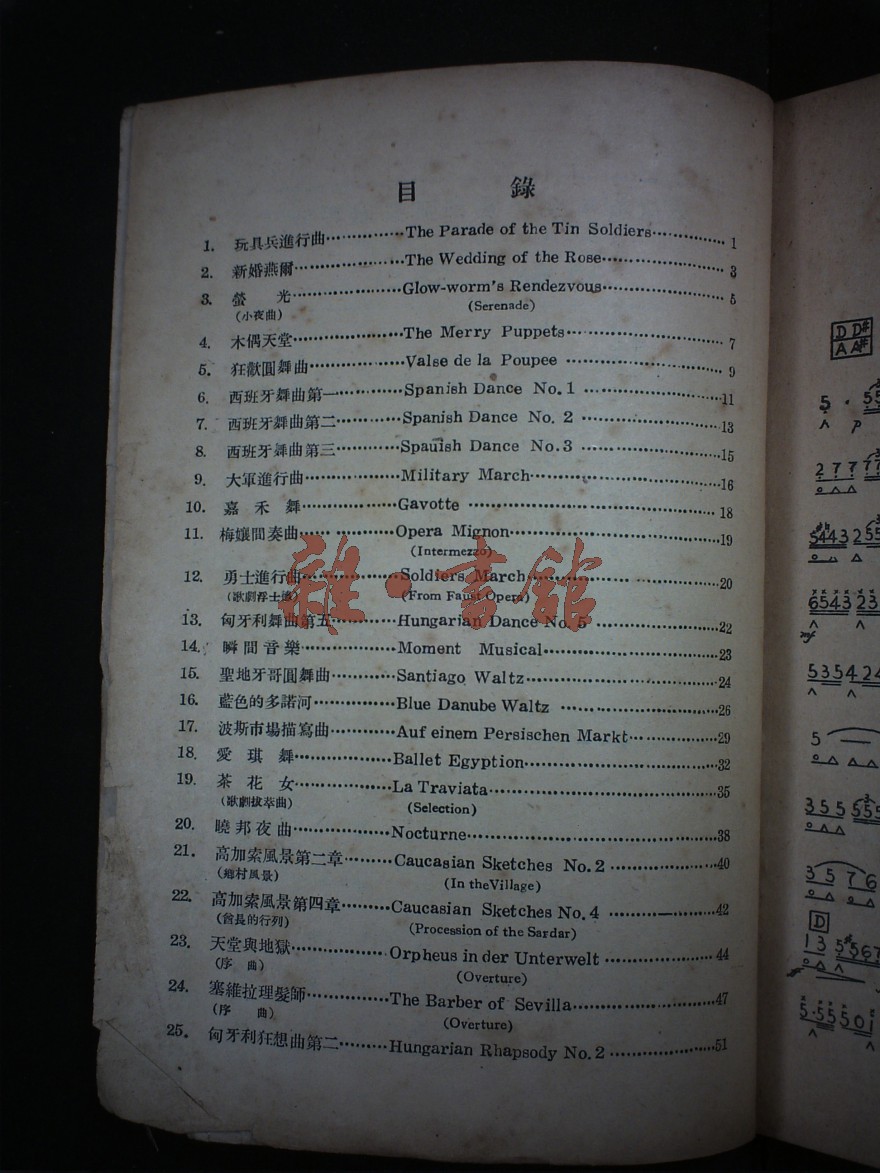 目 錄
1. 玩具兵進行曲 The Parade of the Tin Soldiers 1
2. 新婚燕爾 The Wedding of the Rose 3
3. 螢 光 Glow-worm's Rendezvous 5
(小夜曲) (Serenade)
4. 木偶天堂 The Merry Puppets 7
5. 狂歡圓舞曲 Valse de la Poupee 9
6. 西班牙舞曲第一 Spanish Dance No. 1 11
7. 西班牙舞曲第二 Spanish Dance No. 2 13
8. 西班牙舞曲第三 Spauish Dance No. 3 15
9. 大軍進行曲 Military March 16
10. 嘉禾舞 Gavotte 18
11. 梅孃間奏曲 Opera Mignon 19
(Intermezzo)
12. 勇士進行曲 Soldiers March 20
(歌劇浮士德) (From Faust Opera)
13. 匈牙利舞曲第五 Hungarian Dance No. 5 22
14. 瞬間音樂 Moment Musical 23
15. 聖地牙哥圓舞曲 Santiago Waltz 24
16. 藍色的多諾河 Blue Danube Waltz 26
17. 波斯市場描寫曲 Auf einem Persischen Markt 29
18. 愛琪舞 Ballet Egyption 32
19. 茶花女 La Traviata 35
(歌劇拔萃曲) (Selection)
20. 曉邦夜曲 Nocturne 38
21. 高加索風景第二章 Caucasian Sketches No. 2 40
(鄉村風景) (In theVillage)
22. 高加索風景第四章 Caucasian Sketches No. 4 42
(酋長的行列) (Procession of the Sardar)
23. 天堂與地獄 Orpheus in der Unterwelt 44
(序 曲) (Overture)
24. 塞維拉理髮師 The Barber of Sevilla 47
(序 曲) (Overture)
25. 匈牙利狂想曲第二 Hungarian Rhapsody No. 2 51
雜·書館
D D#
A A#
D